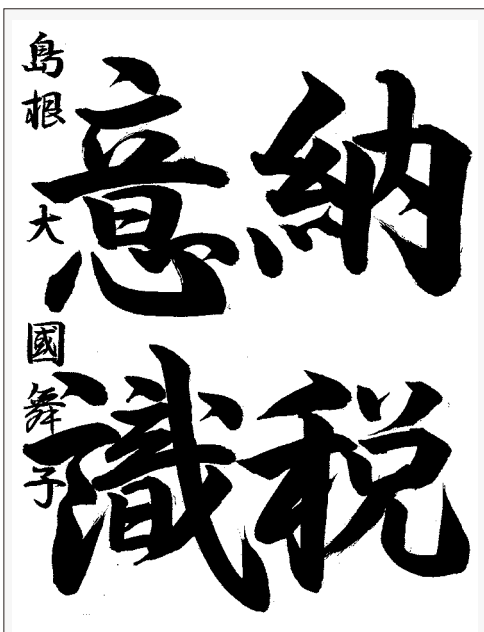 納税
意識
島根 大國舞子